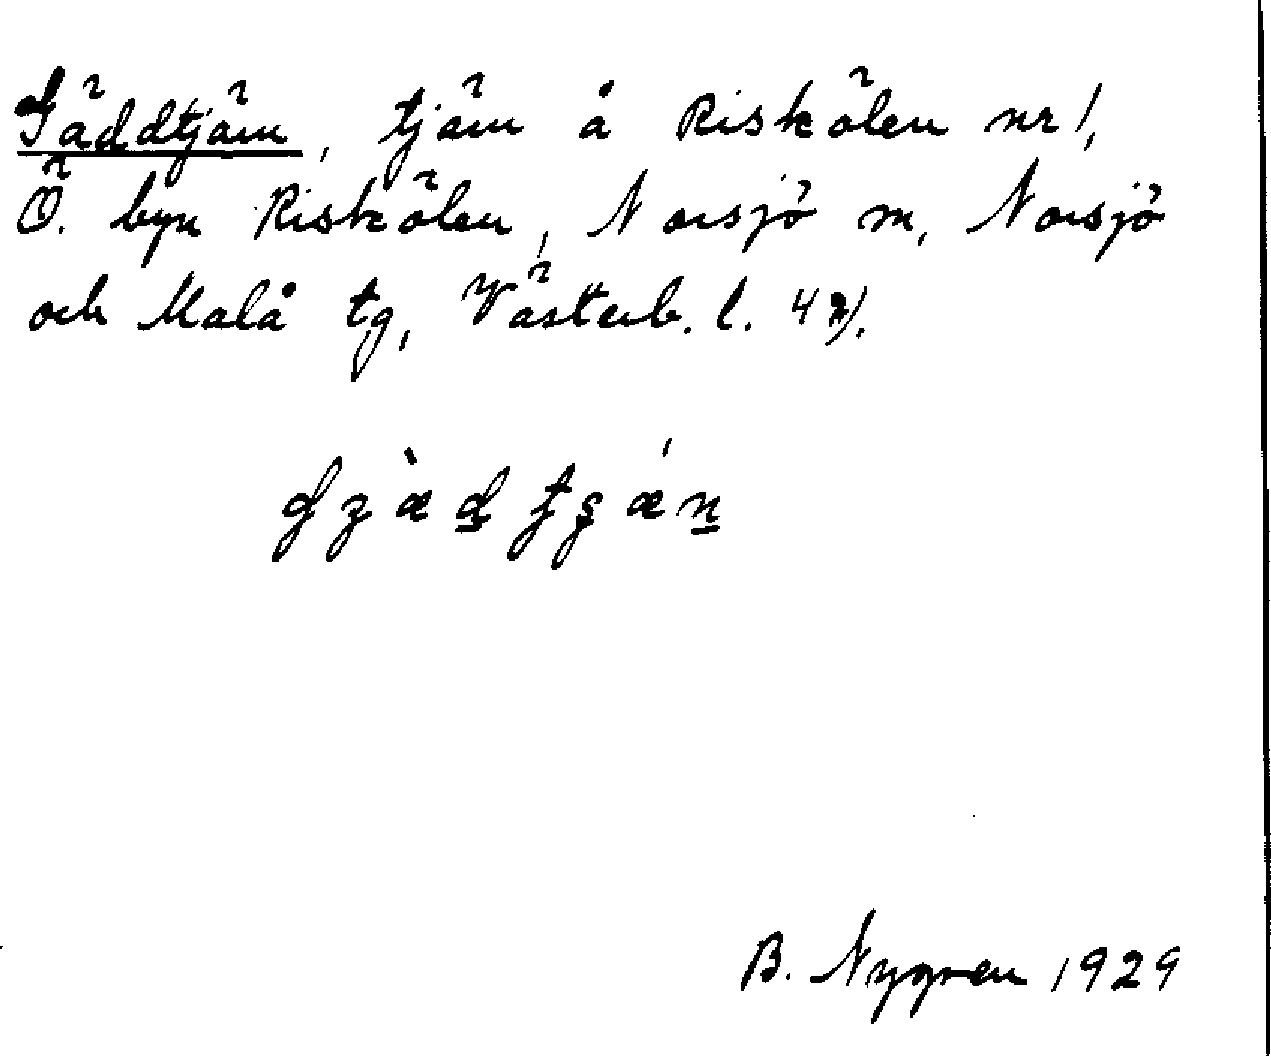 Gäddtjärn, tjärn å Riskölen nr 1,
Ö. byn Riskölen, Norsjö sn, Norsjö
och Malå tg, Västerb. l. 42).
B. Nygren 1929